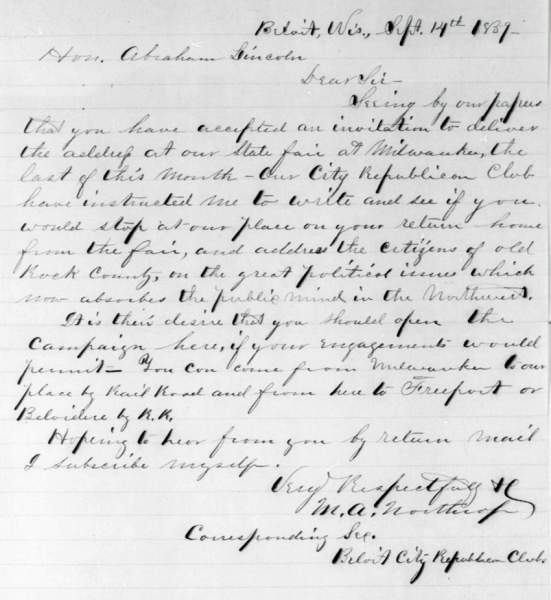 Beloit, Wis., Sept. 14th 1859
Hon. Abraham Lincoln
Dear Sir
Seeing by our papers
that you have accepted an invitation to deliver
the address at our State fair at Milwaukee, the
last of this Month – Our City Republican Club
have instructed me to write and see if you
would stop at our place on your return home
from the fair, and address the citizens of old
Rock County, on the great political issues which
now absorbes the public mind in the Northwest.
It is their desire that you should open the
Campaign here, if your Engagements would
permit – You can come from Milwaukee to our
place by Rail Road and from here to Freeport or
Belvidere by R.R.
Hoping to hear from you by return mail
I subscribe myself.
Very Respectfully &c
M. A. Northrop
Corresponding Sec.
Beloit City Republican Club